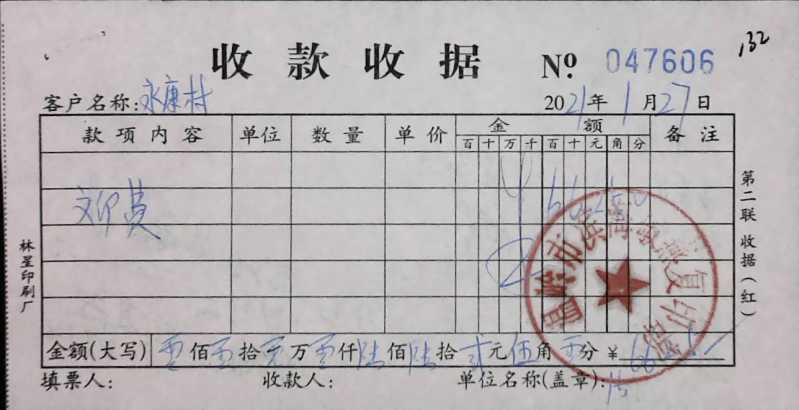 收款收据 Nº 047606 132
客户名称: 永康村 2021年1月27日
款项内容 单位 数量 单价 金额 备注
百 十 万 千 百 十 元 角 分
文印费
金额(大写) 佰 拾 万 仟 陆佰陆拾 元伍角 分 ¥
填票人: 收款人: 单位名称(盖章):
第二联 收据(红)
林星印刷厂
市滨海 复印